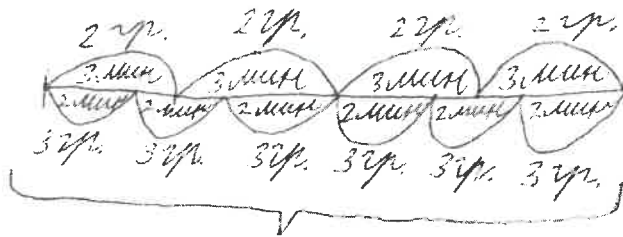 2 гр. 2 гр. 2 гр. 2 гр.
3 мин 3 мин 3 мин 3 мин
2 мин 2 мин 2 мин 2 мин 2 мин 2 мин
3 гр. 3 гр. 3 гр. 3 гр. 3 гр. 3 гр.